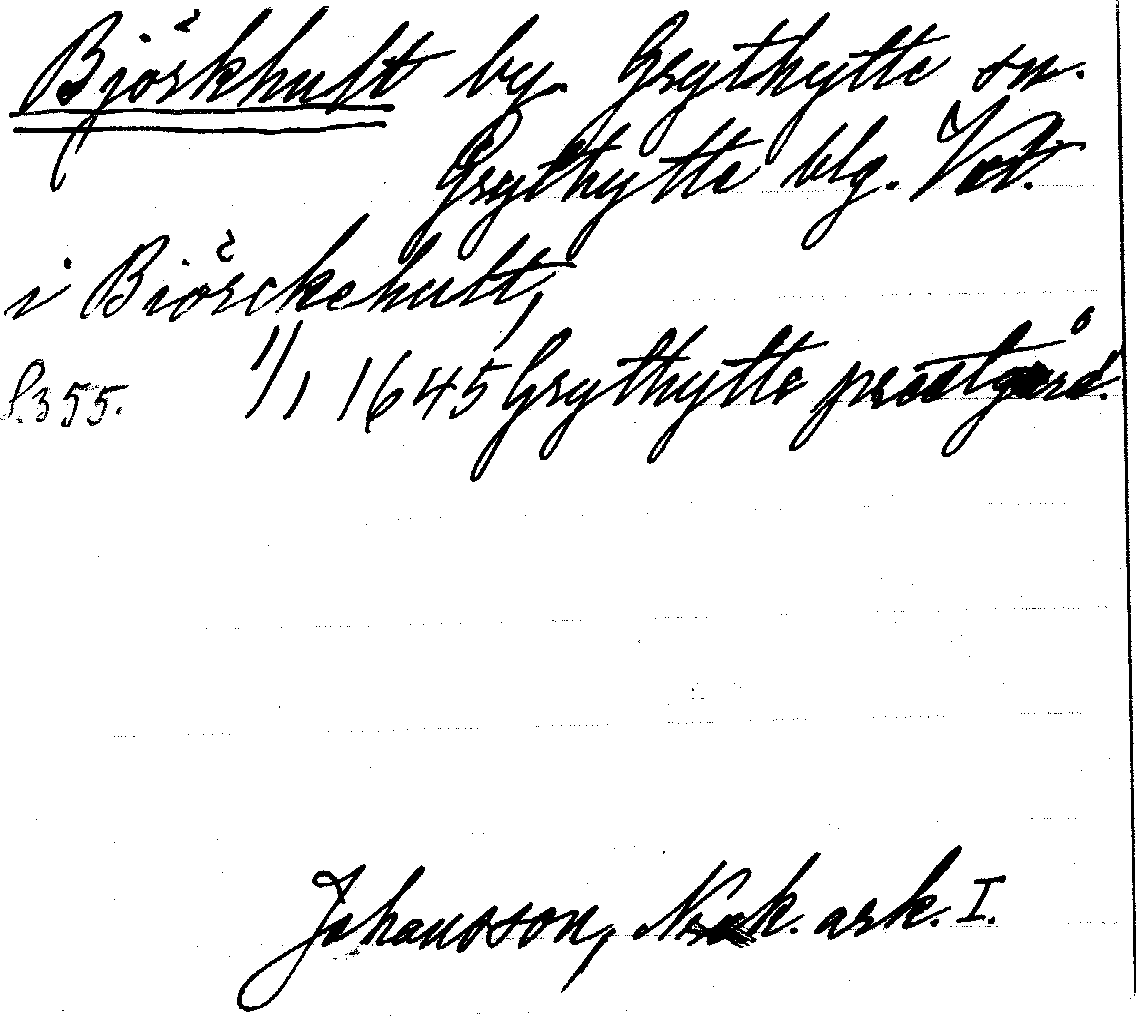 Björkhult by. Grythytte sn.
Grythytte blg. Vstm.
i Biörckehult,
S.355. 1/1 1645 Grythytte prästgård.
Johansson, Norak. ark. I.